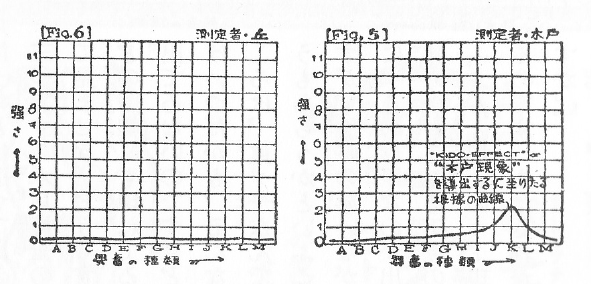 [Fig.6]
測定者・丘
11
10
9
8
7
6
5
4
3
2
1
0
強さ
A B C D E F G H I J K L M
異畜の種類
[Fig.5]
測定者・木戸
11
10
9
8
7
6
5
4
3
2
1
0
強さ
"KIDO-EFFECT" or
"木戸現象"
を導出するに至りたる
根據の曲線
A B C D E F G H I J K L M
異畜の種類